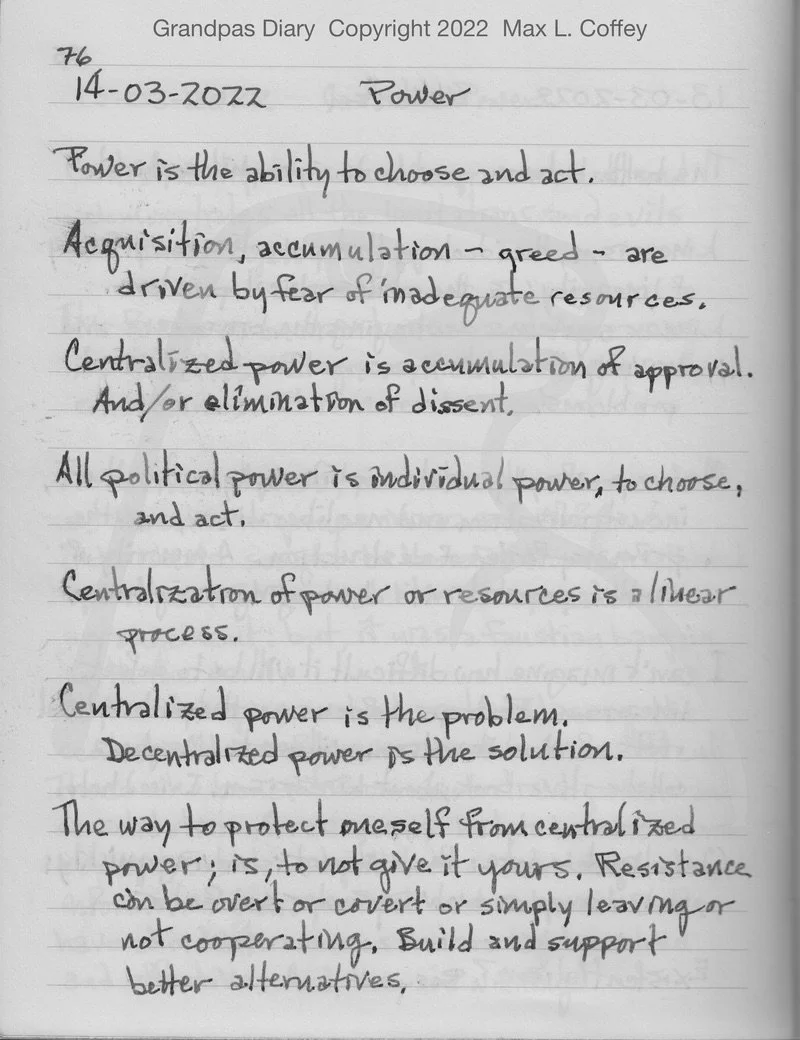 Grandpas Diary Copyright 2022 Max L. Coffey
76
14-03-2022 Power
Power is the ability to choose and act.
Acquisition, accumulation - greed - are
driven by fear of inadequate resources.
Centralized power is accumulation of approval.
And/or elimination of dissent.
All political power is individual power, to choose,
and act.
Centralization of power or resources is a linear
process.
Centralized power is the problem.
Decentralized power is the solution.
The way to protect oneself from centralized
power; is, to not give it yours. Resistance
can be overt or covert or simply leaving or
not cooperating. Build and support
better alternatives.